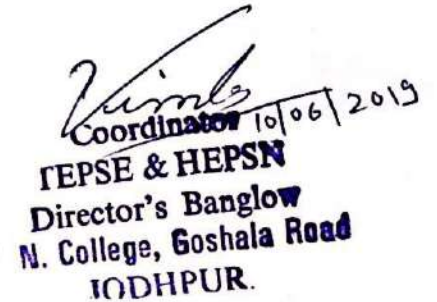 Coordinator 10/06/2019
TEPSE & HEPSN
Director's Banglow
N. College, Goshala Road
JODHPUR.